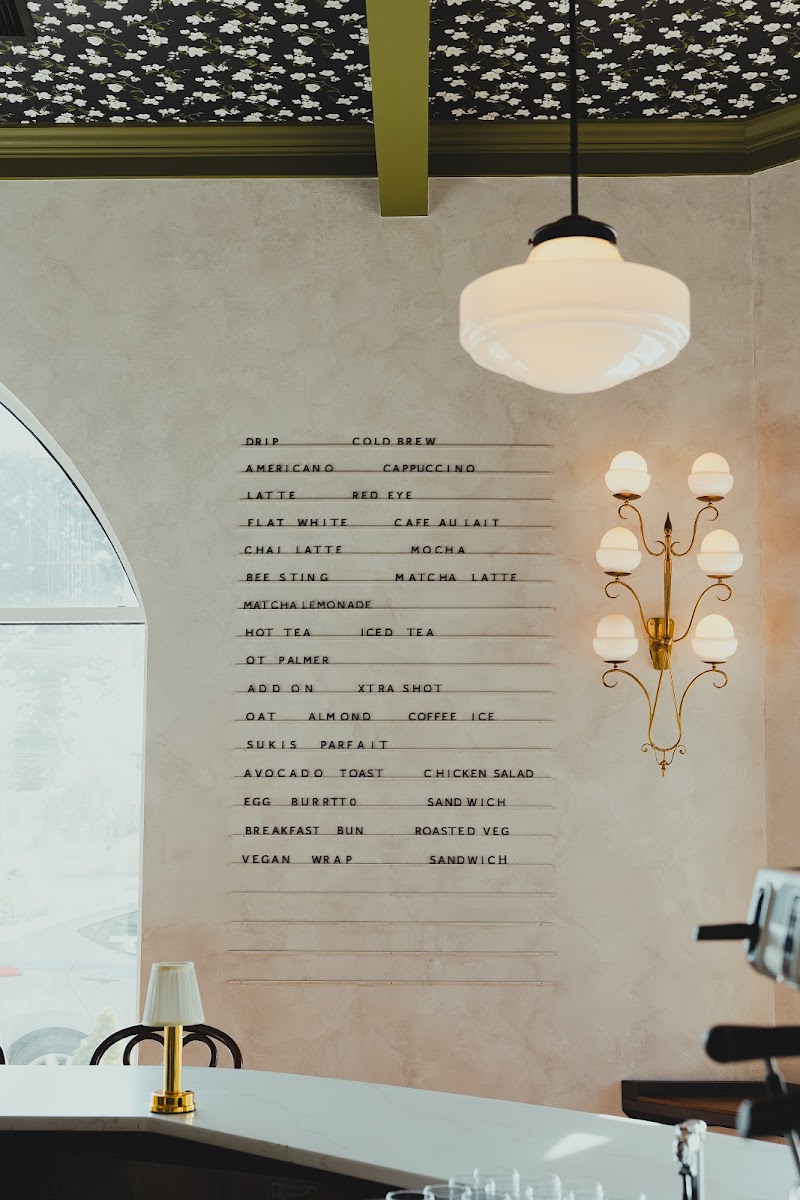 DRIP COLD BREW
AMERICANO CAPPUCCINO
LATTE RED EYE
FLAT WHITE CAFE AU LAIT
CHAI LATTE MOCHA
BEE STING MATCHA LATTE
MATCHA LEMONADE
HOT TEA ICED TEA
OT PALMER
ADD ON XTRA SHOT
OAT ALMOND COFFEE ICE
SUKIS PARFAIT
AVOCADO TOAST CHICKEN SALAD
EGG BURRTTO SANDWICH
BREAKFAST BUN ROASTED VEG
VEGAN WRAP SANDWICH